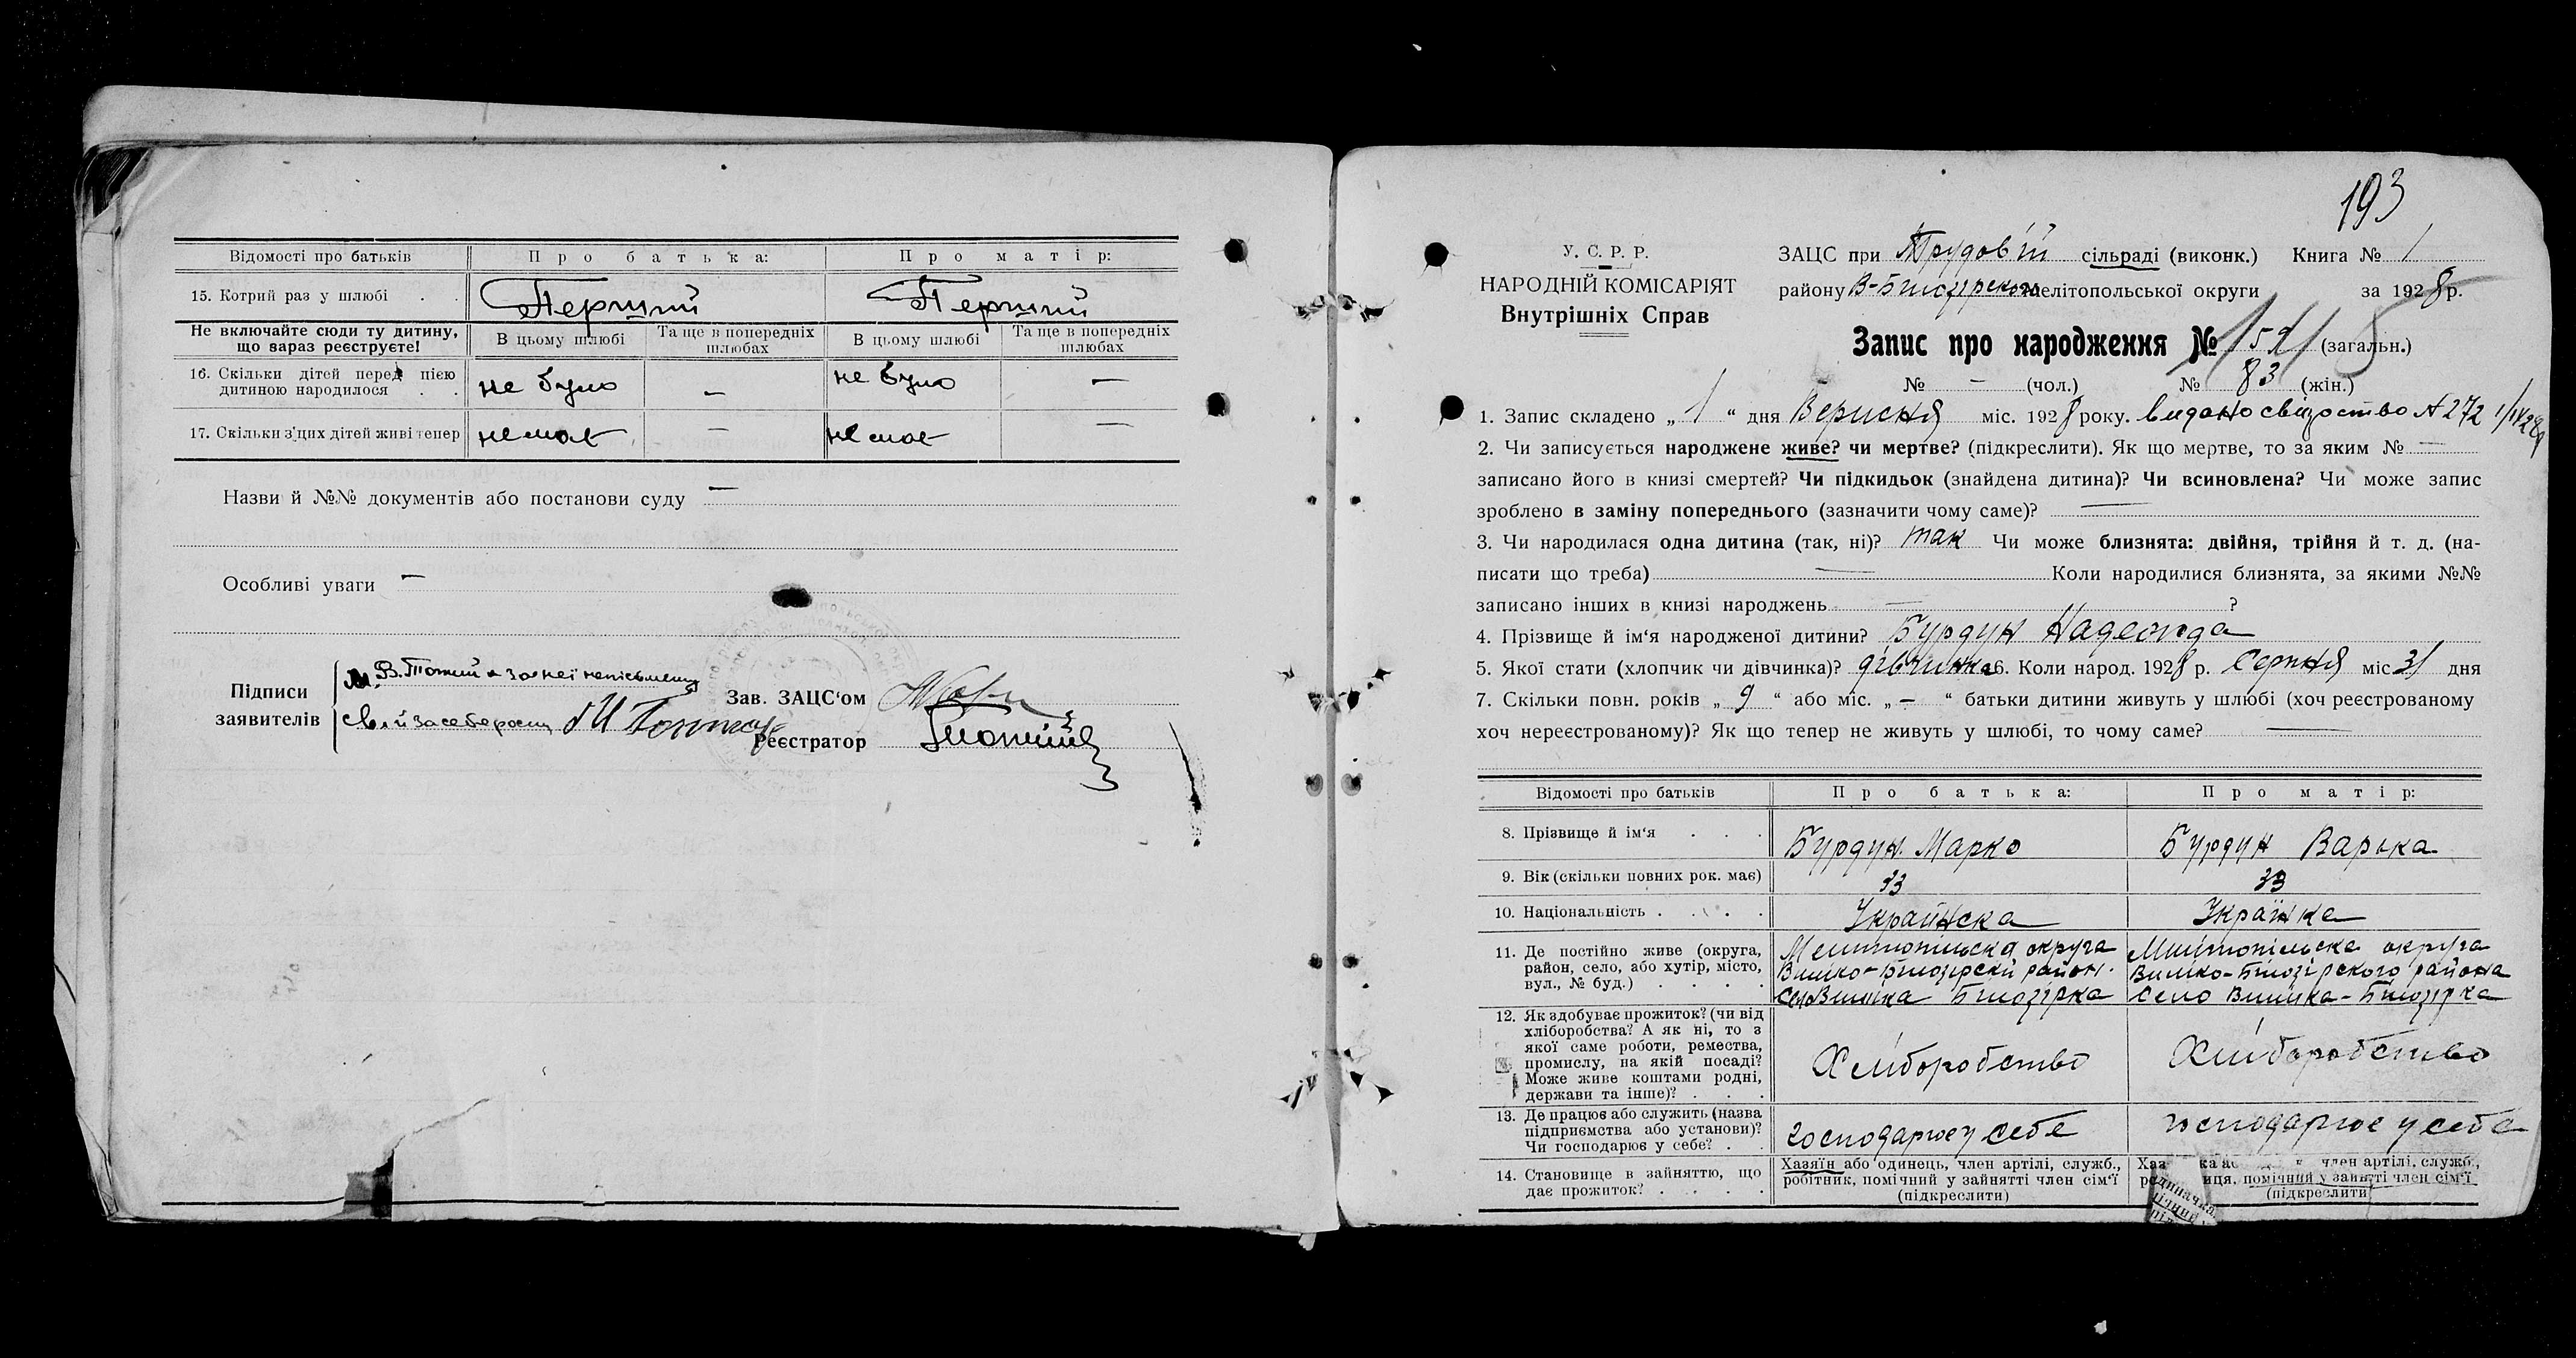 Відомості про батьків Про батька: Про матір:
15. Котрий раз у шлюбі . . Перший Перший
Не включайте сюди ту дитину, що вараз реєструєте! В цьому шлюбі Та ще в попередніх шлюбах В цьому шлюбі Та ще в попередніх шлюбах
16. Скільки дітей перед цією
дитиною народилося . . не було — не було —
17. Скільки з'цих дітей живі тепер немає — немає —
Назви й №№ документів або постанови суду —
Особливі уваги —
Підписи
заявителів
Зав. ЗАЦС'ом
Реєстратор
193
У. С. Р. Р.
НАРОДНІЙ КОМІСАРІЯТ
Внутрішніх Справ
ЗАЦС при Трудовій сільраді (виконк.) Книга № 1
району В-Білозірского Мелітопольської округи за 1928 р.
Запис про народження № (загальн.)
№ — (чол.) № 83 (жін.)
1. Запис складено „ 1 “ дня Вересня міс. 1928 року. видано свідоство А 272
2. Чи записується народжене живе? чи мертве? (підкреслити). Як що мертве, то за яким № —
записано його в книзі смертей? Чи підкидьок (знайдена дитина)? Чи всиновлена? Чи може запис
зроблено в заміну попереднього (зазначити чому саме)? —
3. Чи народилася одна дитина (так, ні)? так Чи може близнята: двійня, трійня й т. д. (на-
писати що треба) — Коли народилися близнята, за якими №№
записано інших в книзі народжень — ?
4. Прізвище й ім'я народженої дитини? Бурдун Надежда
5. Якої стати (хлопчик чи дівчинка)? дівчинка 6. Коли народ. 1928 р. Серпня міс 31 дня
7. Скільки повн. років „ 9 “ або міс. „ — “ батьки дитини живуть у шлюбі (хоч реєстрованому
хоч нереєстрованому)? Як що тепер не живуть у шлюбі, то чому саме? —
Відомості про батьків Про батька: Про матір:
8. Прізвище й ім'я . . . Бурдун Марко Бурдун Варька
9. Вік (скільки повних рок. має) 33 33
10. Національність . . . . Українска Українка
11. Де постійно живе (округа,
район, село, або хутір, місто,
вул., № буд.) . . . .
Мелітопільска округа
Велико-Білозірский район.
Село Велика Білозірка
Мелітопільска округа
Велико-Білозірского района
Село Велика-Білозірка
12. Як здобуває прожиток? (чи від
хліборобства? А як ні, то з
якої саме роботи, ремества,
промислу, на якій посаді?
Може живе коштами родні,
держави та інше)? . . .
Хліборобство Хліборобство
13. Де працює або служить (назва
підприємства або установи)?
Чи господарює у себе? . .
господарює у себе господарює у себе
14. Становище в зайняттю, що
дає прожиток? . . . .
Хазяїн або одинець, член артілі, служб.,
робітник, помічний у зайнятті член сім'ї
(підкреслити)
член артілі, служб.,
помічний у зайнятті член сім'ї
(підкреслити